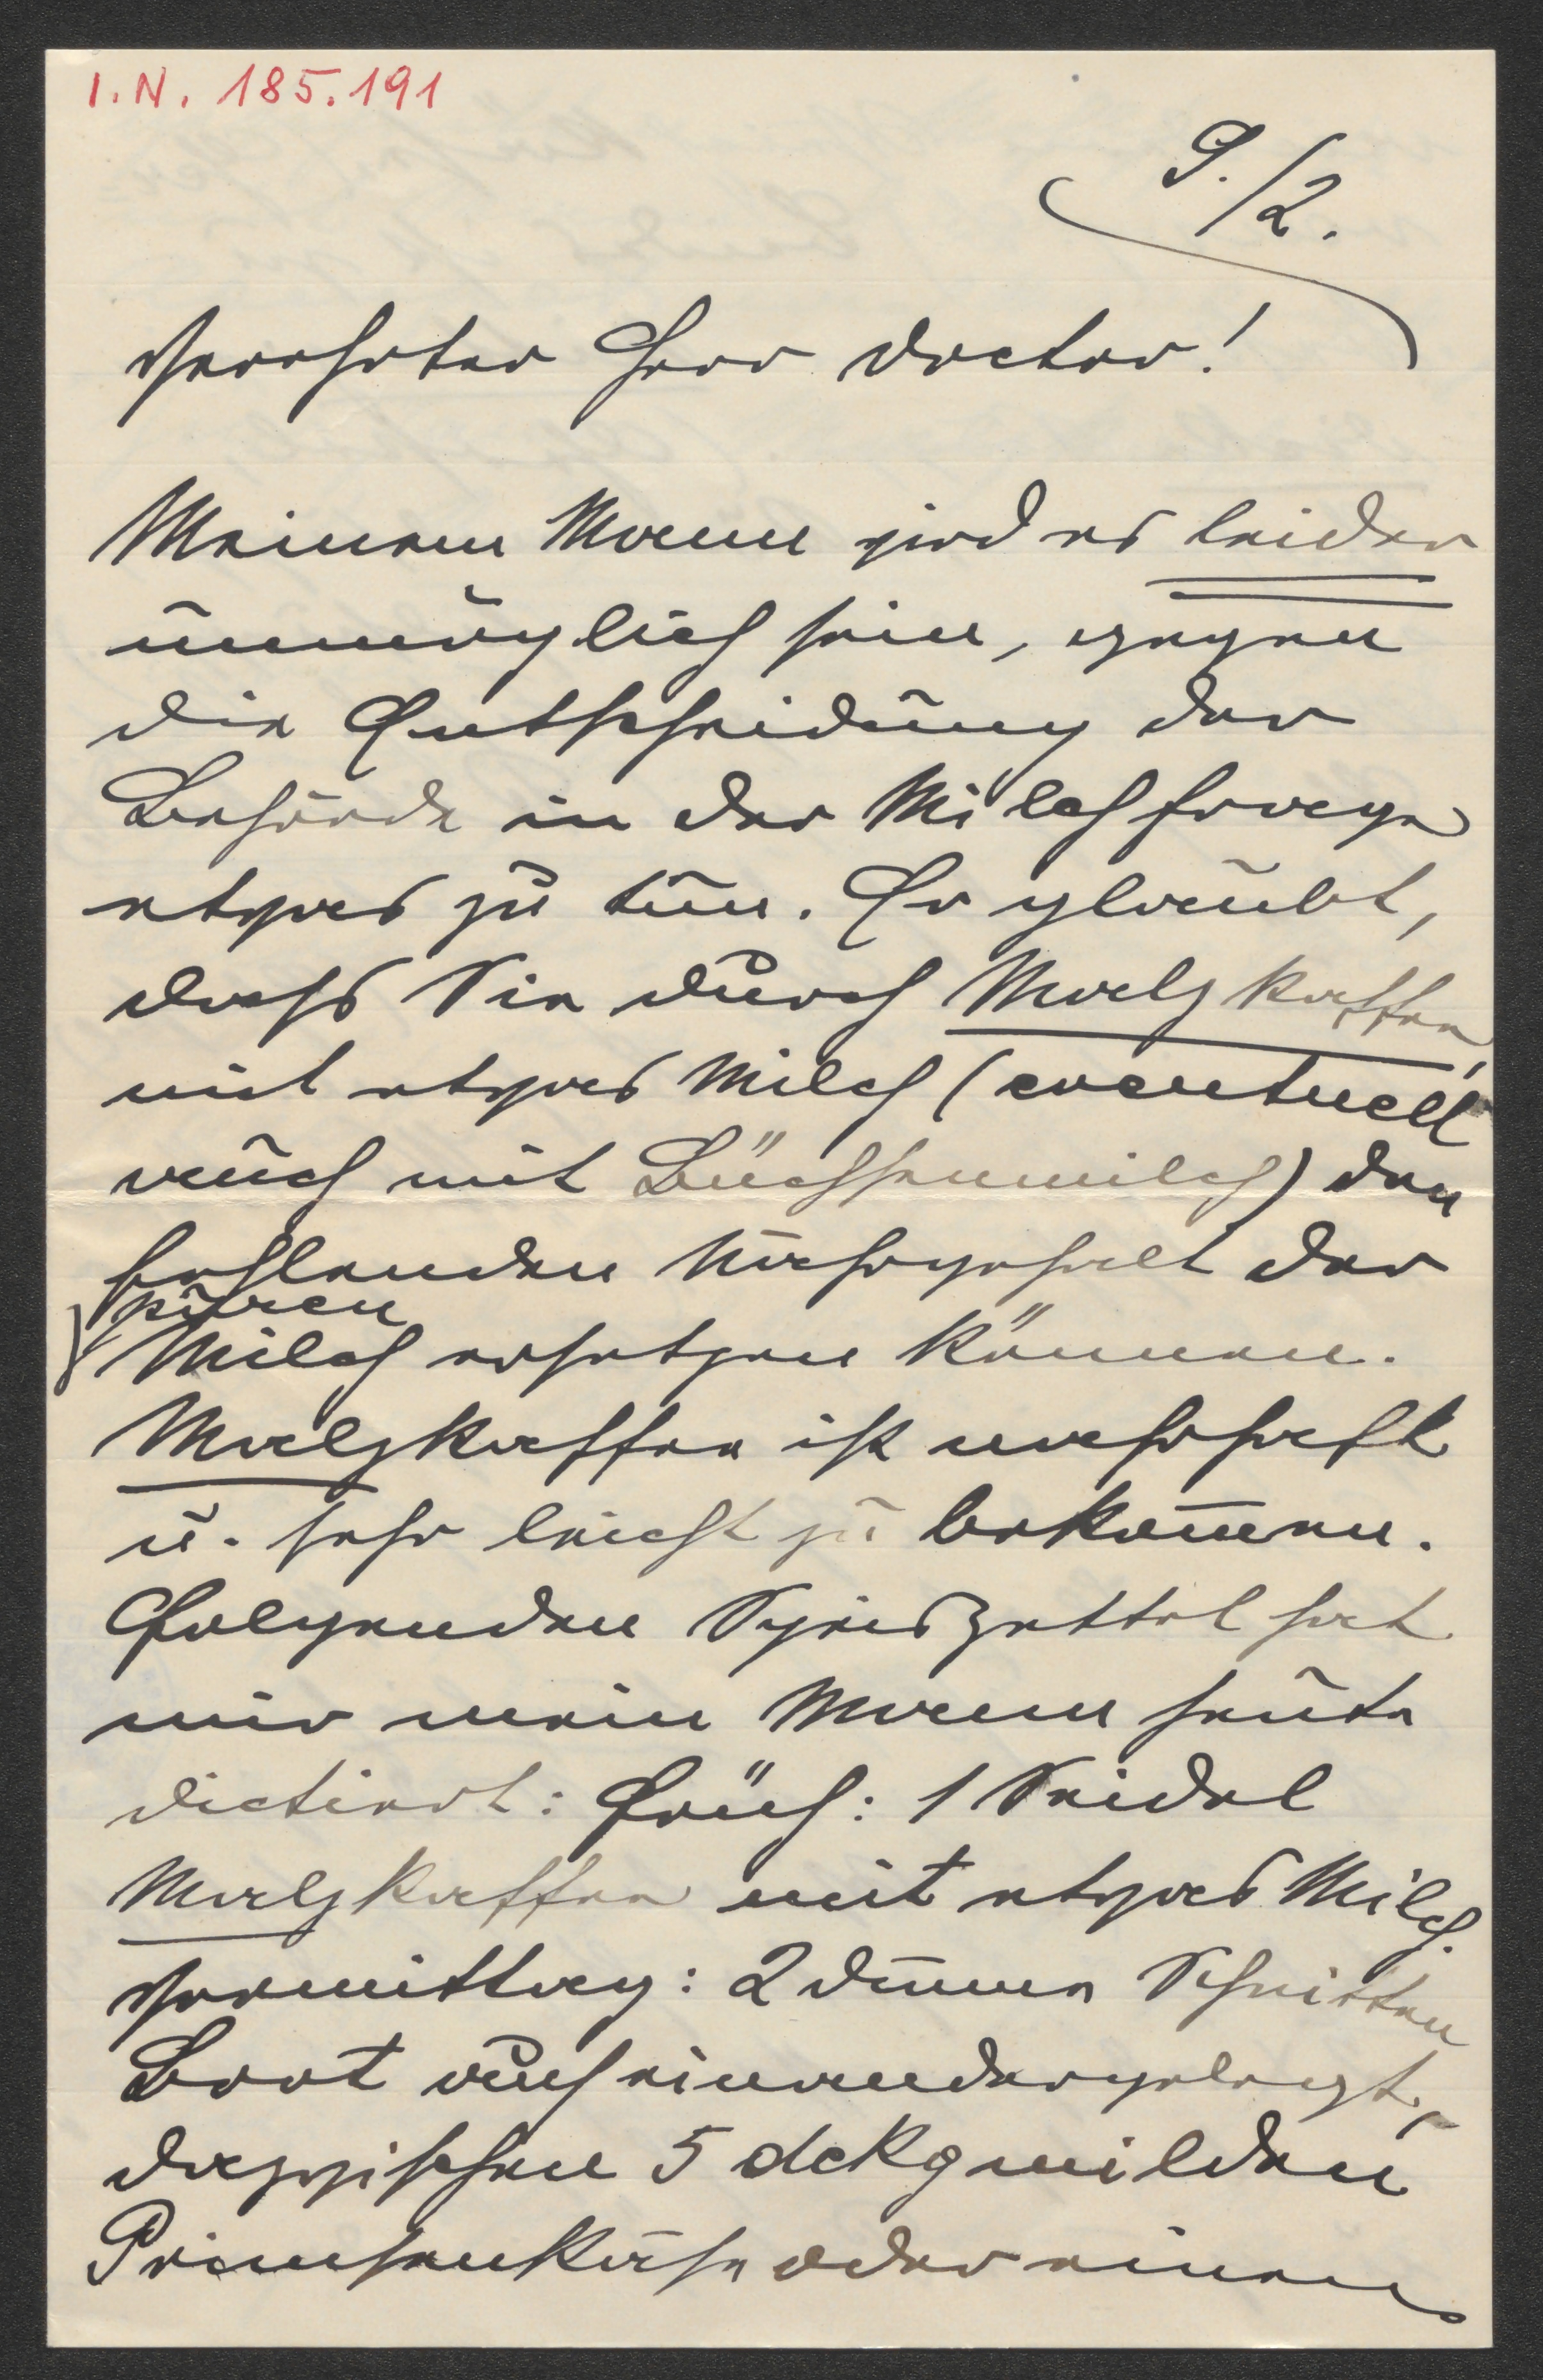 I.N. 185.191
9./2.
Verehrter Herr Doctor!
Meinem Manne wird es leider
unmöglich sein, gegen
die Entscheidung der
Behörde in der Milchfrage
etwas zu tun. Er glaubt,
dass Sie durch Malzkaffee,
mit etwas Milch (eventuell
auch mit Büchsenmilch) den
fehlenden Nährgehalt der
puren
Milch ersetzen können.
Malzkaffee ist nahrhaft
u. sehr leicht zu bekom̅en.
Folgenden Speiszettel hat
mir mein Mann heute
dictiert: Früh: 1 Seidel
Malzkaffee mit etwas Milch.
Vormittag: 2 dünne Schnitten
Brot aufeinandergelegt,
dazwischen 5 dckg milden
Primsenkäse oder einen